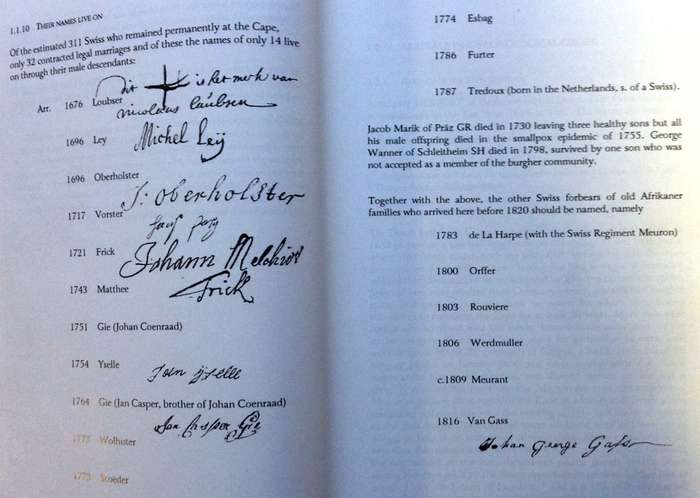 1.1.10 THEIR NAMES LIVE ON
Of the estimated 311 Swiss who remained permanently at the Cape,
only 32 contracted legal marriages and of these the names of only 14 live
on through their male descendants:
dit is het merk van
Arr. 1676 Loubser
nicolaus laubsen
1696 Ley
Michel Leÿ
1696 Oberholster
J: oberholster
1717 Vorster
1721 Frick
Johann Melchior
1743 Matthee
Frick
1751 Gie (Johan Coenraad)
1754 Yselle
Jan ÿselle
1764 Gie (Jan Casper, brother of Johan Coenraad)
Jan Casper Gie
1773 Wolhuter
1773 Stroeder
1774 Esbag
1786 Furter
1787 Tredoux (born in the Netherlands, s. of a Swiss).
Jacob Marik of Präz GR died in 1730 leaving three healthy sons but all
his male offspring died in the smallpox epidemic of 1755. George
Wanner of Schleitheim SH died in 1798, survived by one son who was
not accepted as a member of the burgher community.
Together with the above, the other Swiss forbears of old Afrikaner
families who arrived here before 1820 should be named, namely
1783 de La Harpe (with the Swiss Regiment Meuron)
1800 Orffer
1803 Rouviere
1806 Werdmuller
c.1809 Meurant
1816 Van Gass
Johan George Gass